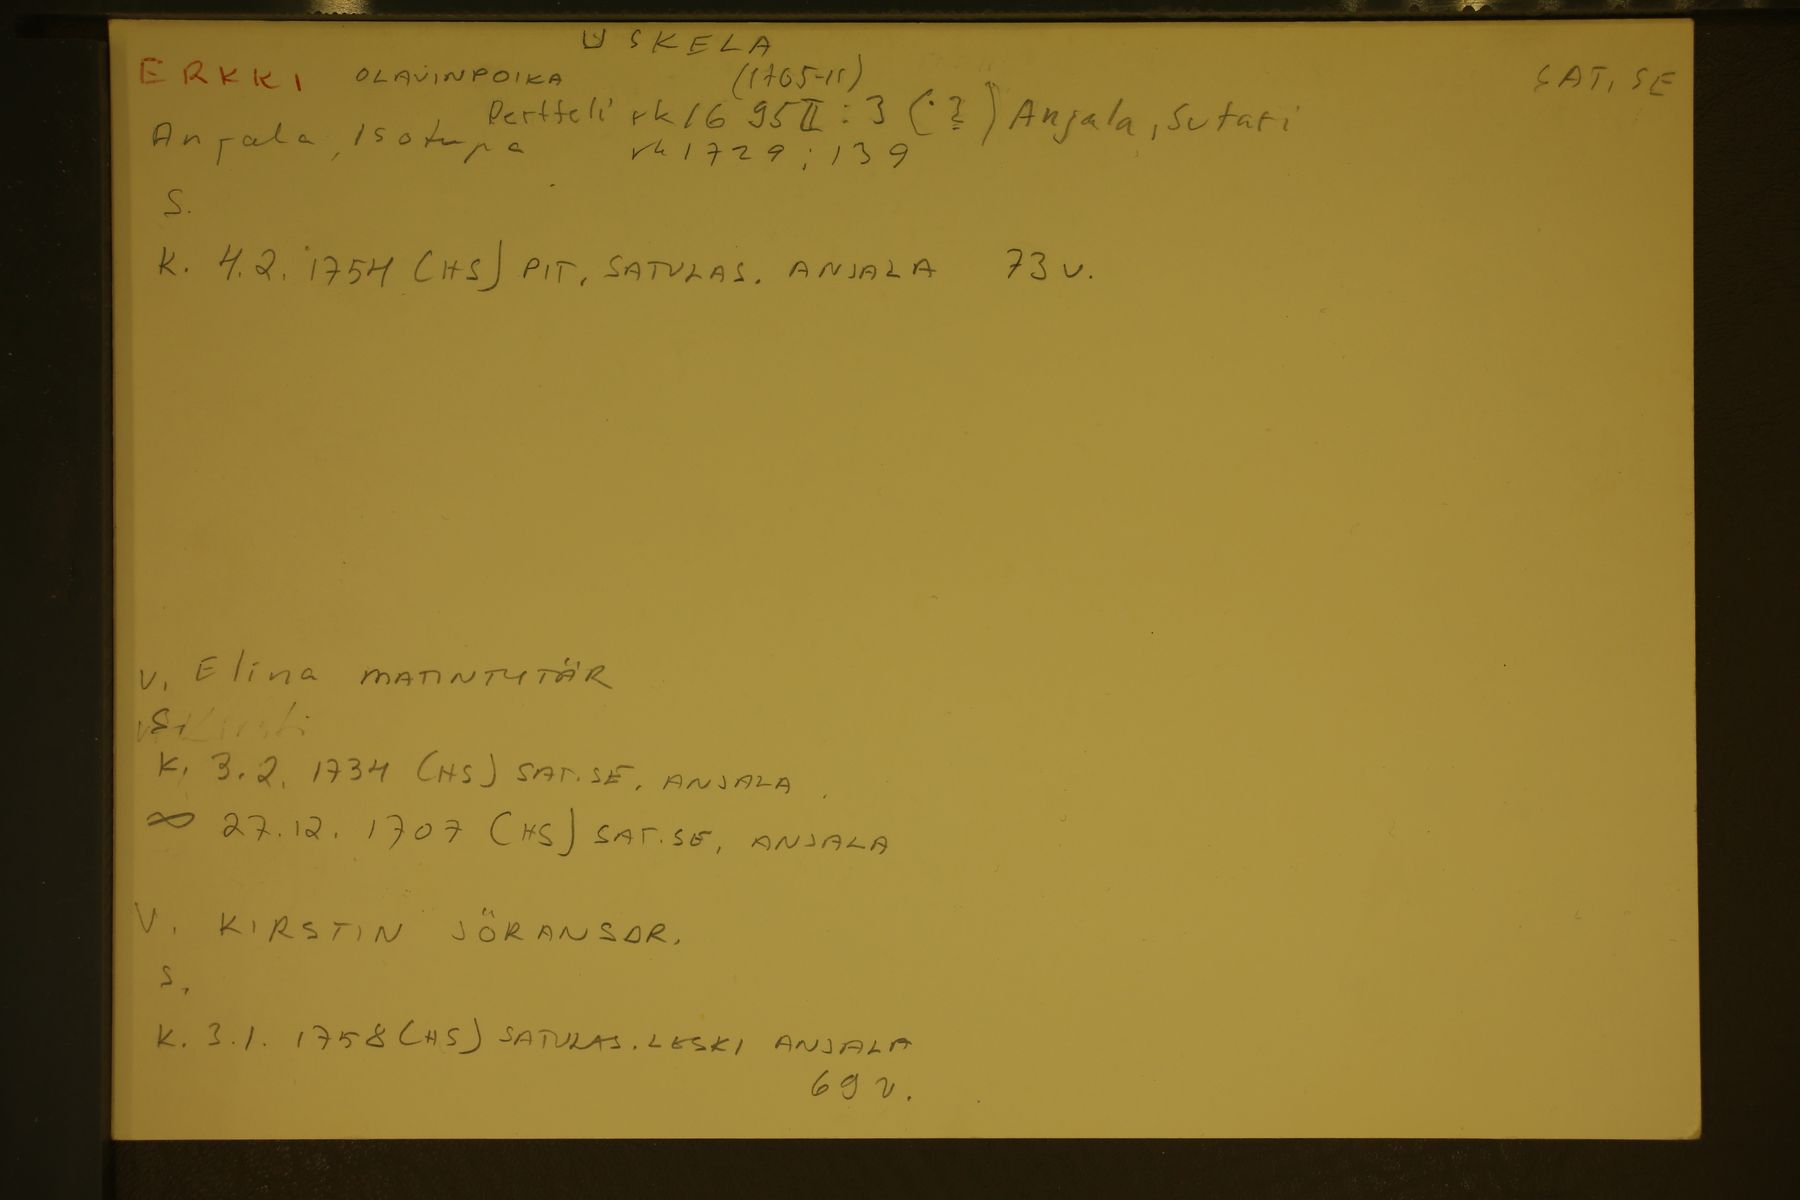 USKELA
ERKKI OLAVINPOIKA (1705-11) SAT. SE
Pertteli rk 1695 II : 3 (?) Anjala, Sutari
Anjala, Isotupa rk 1729 ; 139
S.
K. 4.2. 1754 (HS) PIT. SATULAS. ANJALA 73 v.
V. Elina MATINTYTÄR
S.
K. 3.2. 1734 (HS) SAT.SE. ANJALA
∞ 27.12. 1707 (HS) SAT.SE, ANJALA
V. KIRSTIN JÖRANSDR.
S.
K. 3.1. 1758 (HS) SATULAS. LESKI ANJALA
69 v.